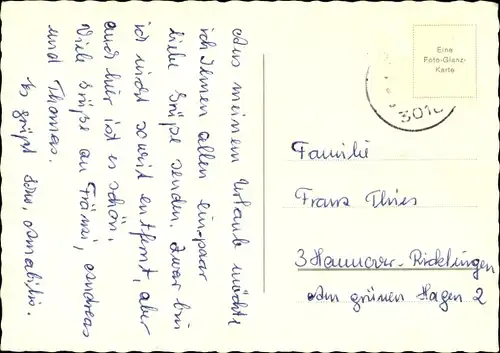 Aus meinem Urlaub möchte
ich Ihnen allen ein paar
liebe Grüße senden. Zwar bin
ich nicht soweit entfernt, aber
auch hier ist es schön.
Viele Grüße an Fränzi, Andreas
und Thomas.
Es grüßt
Eine
Foto-Glanz-
Karte
301
Familie
Franz Thies
3 Hannover-Ricklingen
Am grünen Hagen 2